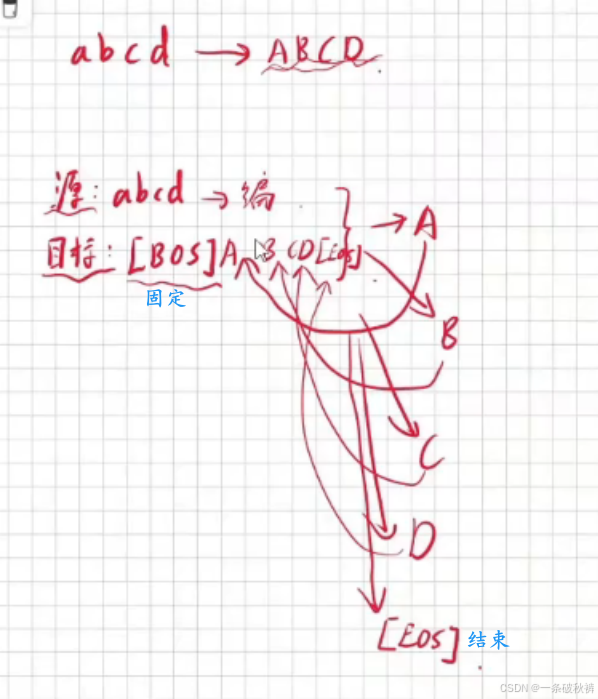 abcd → ABCD.
源: abcd → 编 } → A
目标: [BOS]A B CD[EOS]
固定
B
C
D
[EOS] 结束
CSDN @一条破秋裤